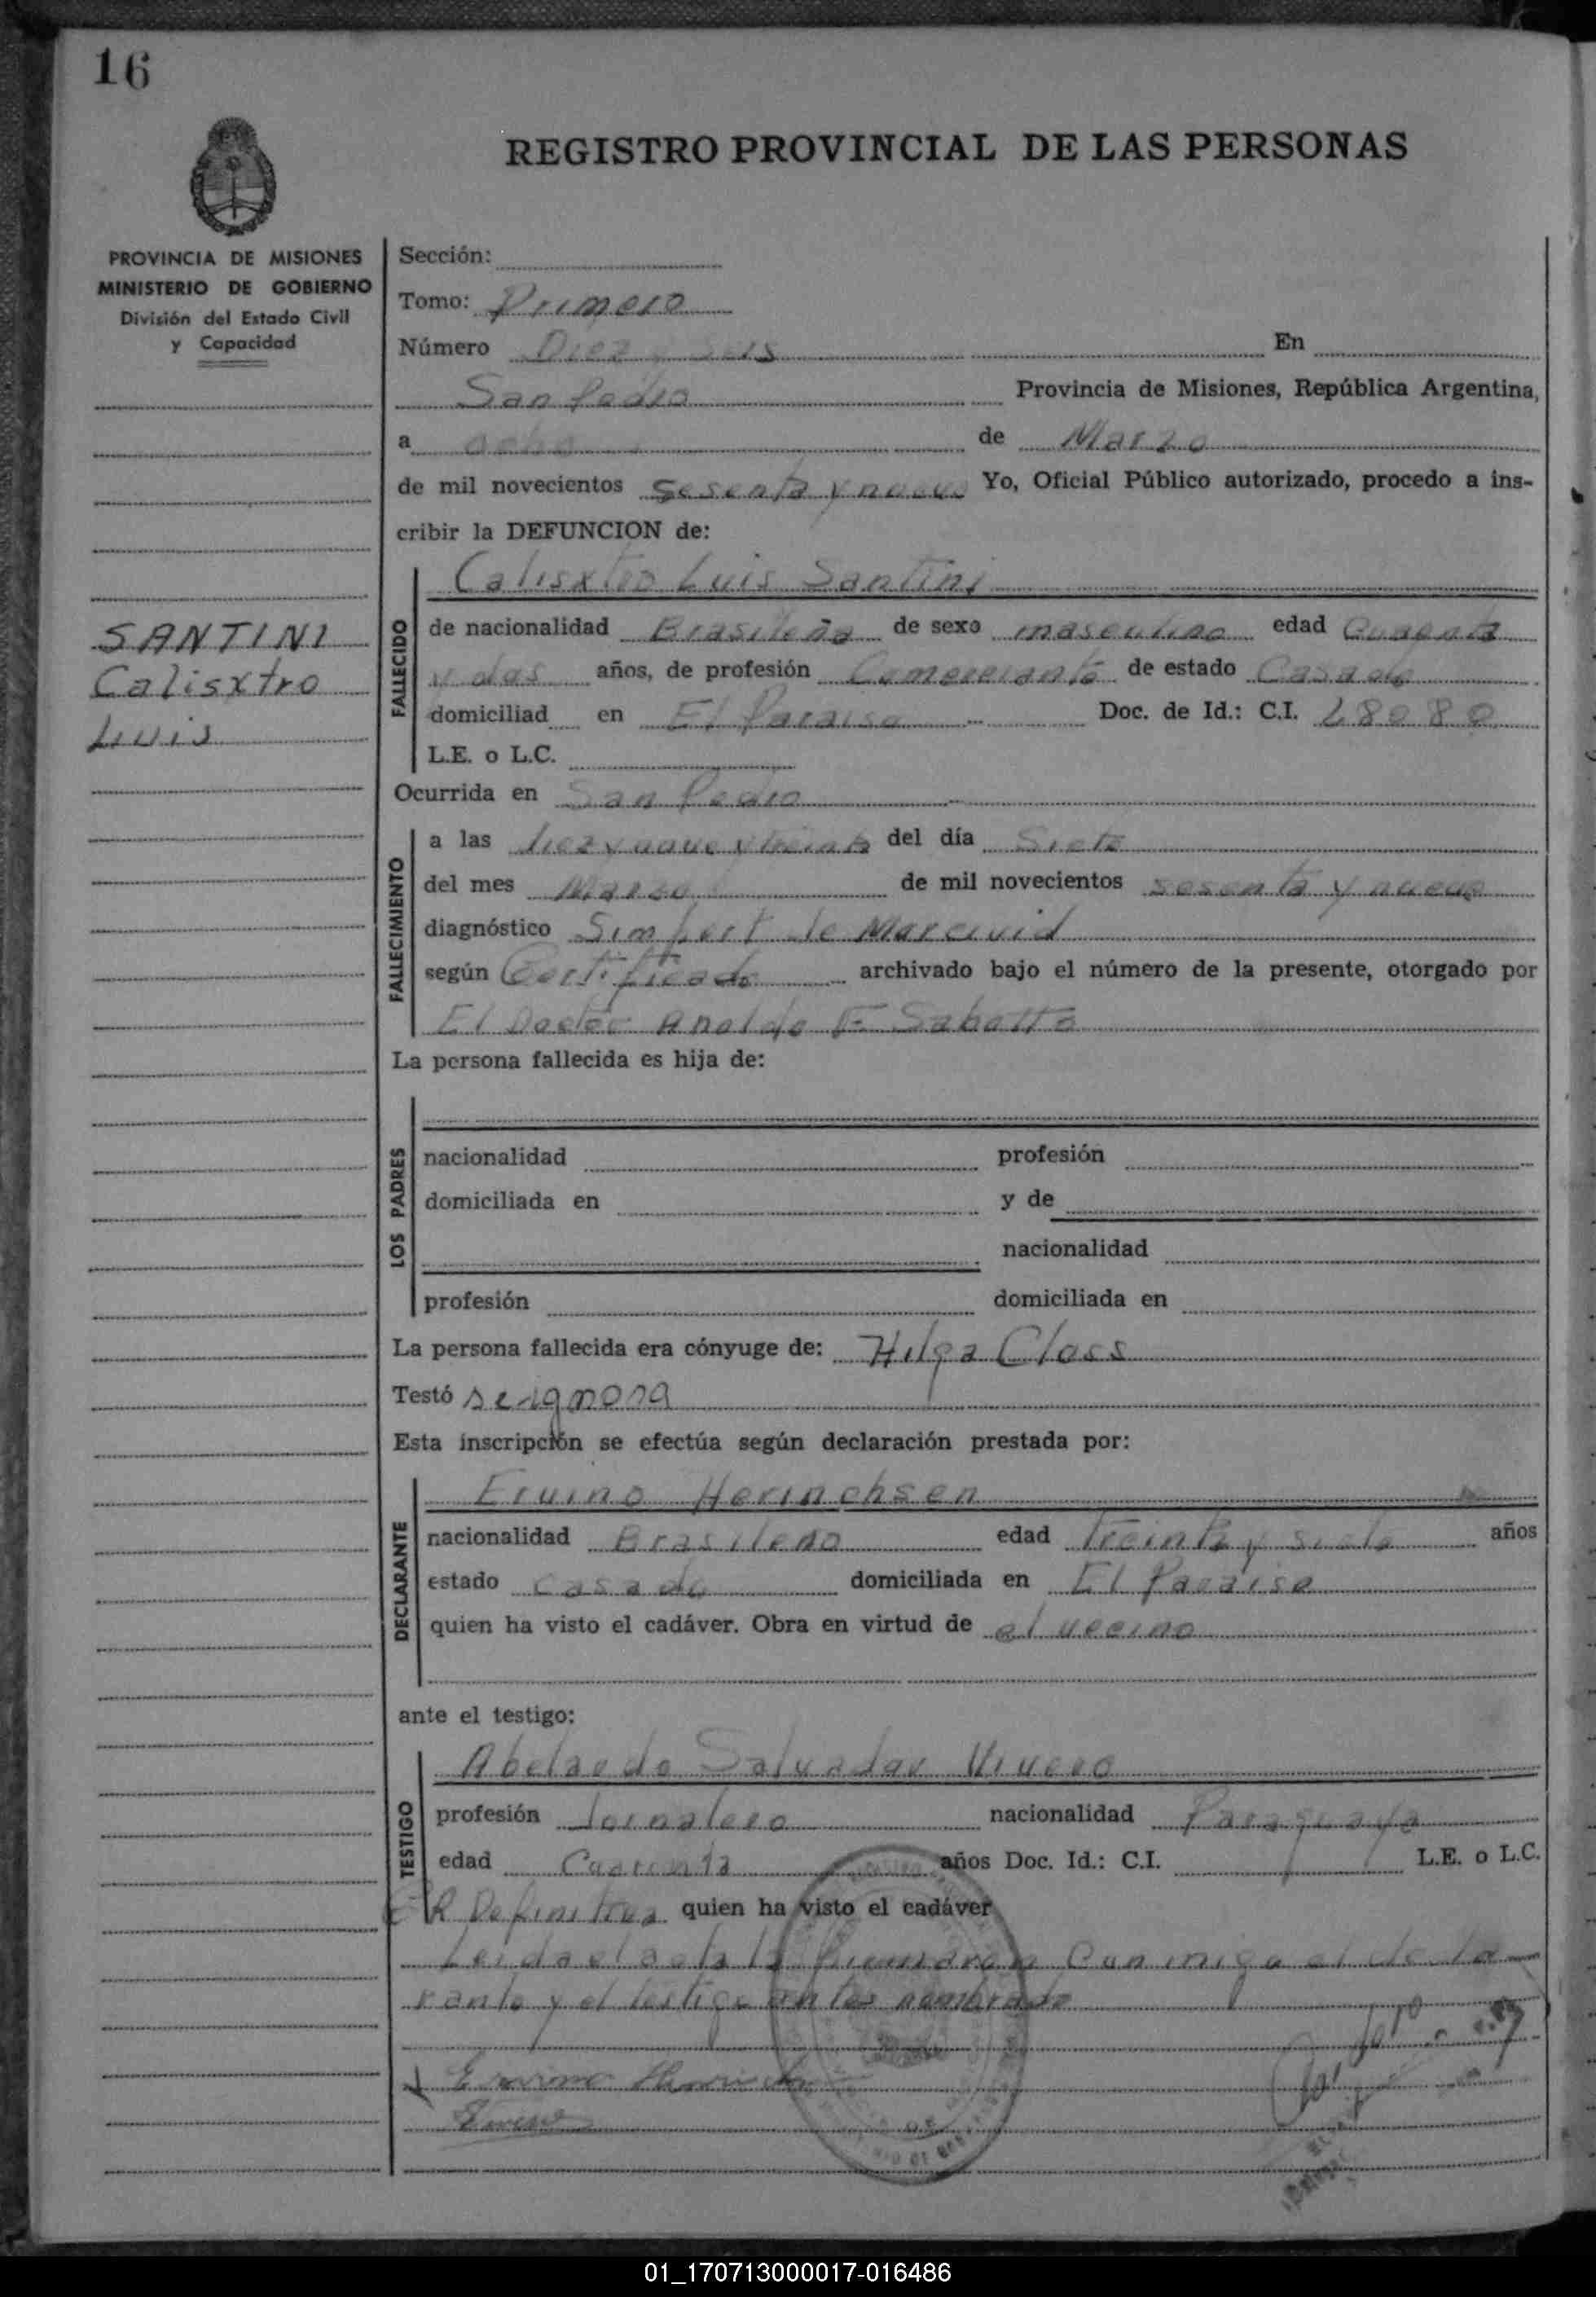 16
REGISTRO PROVINCIAL DE LAS PERSONAS
PROVINCIA DE MISIONES
MINISTERIO DE GOBIERNO
División del Estado Civil
y Capacidad
SANTINI
Calisxtro
Luis
Sección:
Tomo: Primero
Número Diez y Seis En
San Pedro Provincia de Misiones, República Argentina,
a ocho de Marzo
de mil novecientos sesenta y nueve Yo, Oficial Público autorizado, procedo a ins-
cribir la DEFUNCION de:
Calisxtro Luis Santini
FALLECIDO
de nacionalidad Brasileña de sexo masculino edad
y dos años, de profesión de estado Casado
domiciliad en El Paraiso Doc. de Id.: C.I. 28080
L.E. o L.C.
Ocurrida en San Pedro
FALLECIMIENTO
a las del día Siete
del mes Marzo de mil novecientos sesenta y nueve
diagnóstico
según Certificado archivado bajo el número de la presente, otorgado por
El Doctor F. Sabatto
La persona fallecida es hija de:
LOS PADRES
nacionalidad profesión
domiciliada en y de
nacionalidad
profesión domiciliada en
La persona fallecida era cónyuge de: Hilga Class
Testó
Esta inscripción se efectúa según declaración prestada por:
Eruino Herinchsen
DECLARANTE
nacionalidad Brasileño edad Treinta y siete años
estado casado domiciliada en El Paraiso
quien ha visto el cadáver. Obra en virtud de el vecino
ante el testigo:
Abelardo Salvador Vivero
TESTIGO
profesión Jornalero nacionalidad Paraguaya
edad años Doc. Id.: C.I. L.E. o L.C.
Definitiva quien ha visto el cadáver
Leida el acta la Conmigo el decla
rante y el testigo antes nombrado
01_170713000017-016486